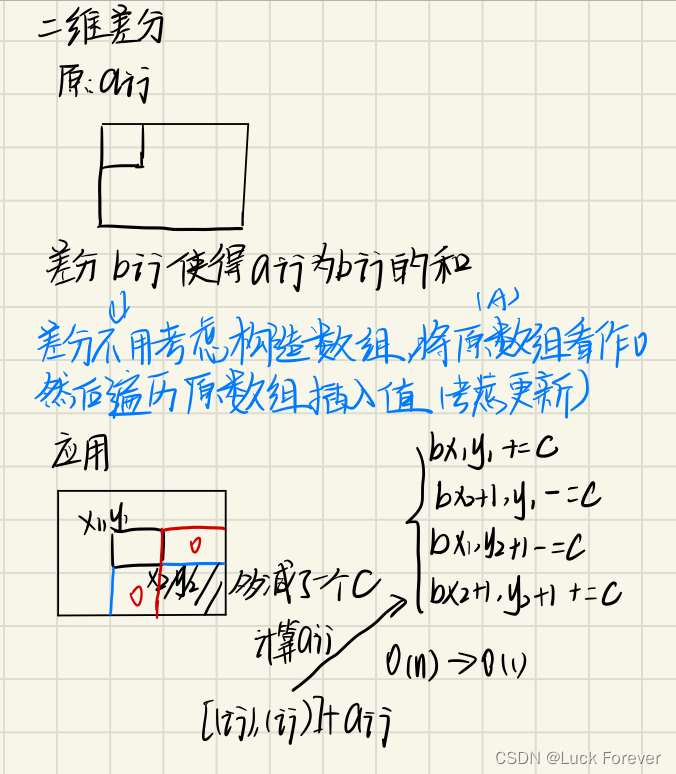 二维差分
原: aij
差分 bij 使得 aij 为 bij 的和
(A)
差分不用考虑构造数组, 将原数组看作0
然后遍历原数组插入值 (考虑更新)
应用
bx1y1 += C
bx2+1, y1 -= C
bx1, y2+1 -= C
bx2+1, y2+1 += C
x1, y1
0
x2, y2
0
多减了一个C
计算aij
O(n) → O(1)
[(ij), (ij)] + aij
CSDN @Luck Forever